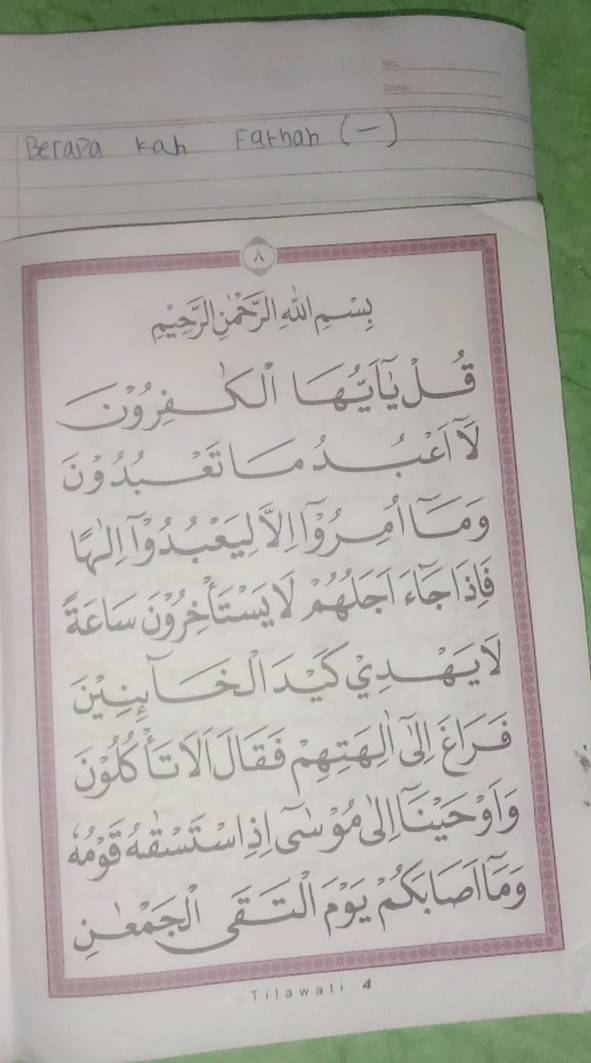 No.
Date:
Berapa kah Fathah (—)
٨
بِسْمِ اللهِ الرَّحْمٰنِ الرَّحِيْمِ
قُلْ يَآاَيُّهَا الْكٰفِرُوْنَ
لَآ اَعْبُدُ مَا تَعْبُدُوْنَ
وَمَآ اُمِرُوْآ اِلَّا لِيَعْبُدُوْآ اِلٰهًا
فَاِذَا جَآءَ اَجَلُهُمْ لَا يَسْتَأْخِرُوْنَ سَاعَةً
لَا يَهْدِيْ كَيْدَ الْخَآئِنِيْنَ
فَرَاغَ اِلٰٓى اٰلِهَتِهِمْ فَقَالَ اَلَا تَأْكُلُوْنَ
وَاَوْحَيْنَآ اِلٰى مُوْسٰٓى اِذِ اسْتَسْقٰهُ قَوْمُهٗ
وَمَآ اَصَابَكُمْ يَوْمَ الْتَقَى الْجَمْعٰنِ
Tilawati 4